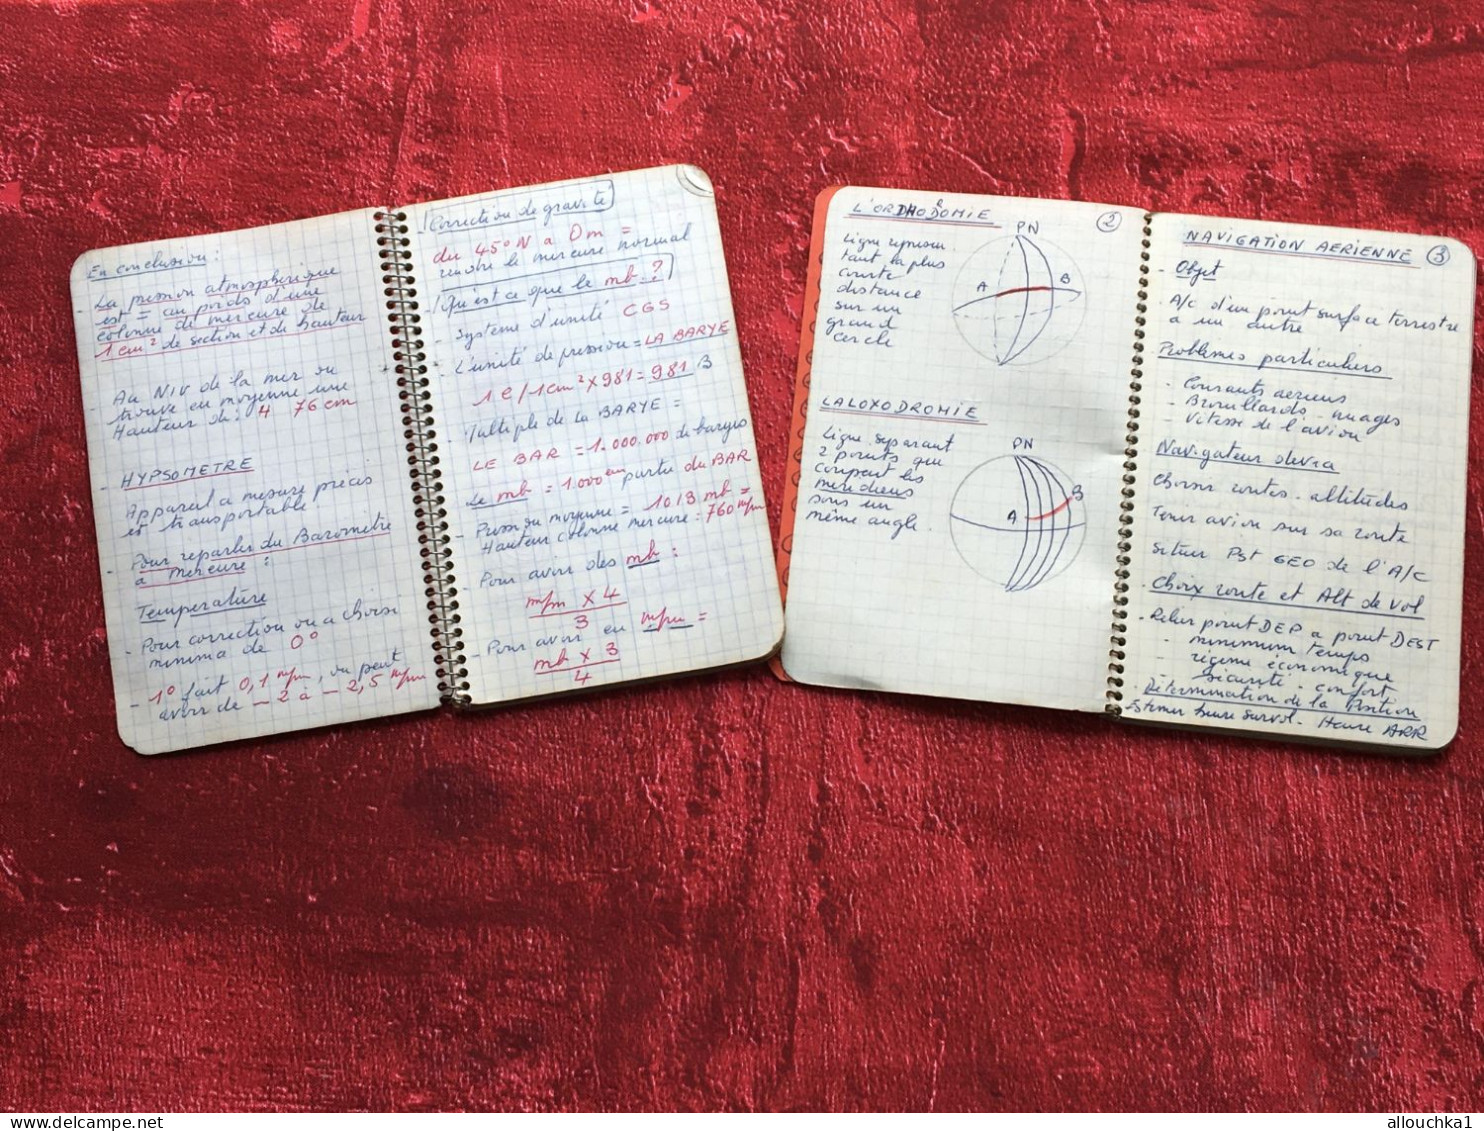 En conclusion :
- La pression atmosphérique
est = au poids d'une
colonne de mercure de
1 cm² de section et de hauteur
- Au NIV de la mer on
trouve en moyenne une
Hauteur de : 76 cm
- HYPSOMETRE
Appareil a mesure précis
et transportable
- Pour reparler du Baromètre
a mercure :
Temperature
- Pour correction on a choisi
minima de 0°
- 1° fait 0,1 m/m, on peut
avoir de - 2 à - 2,5 m/m
Correction de gravité
du 45° N a 0 m =
rendre le mercure normal
Qu'est ce que le mb ?
- Système d'unité CGS
- L'unité de pression = LA BARYE
1 e / 1 cm² x 981 = 981 B
- Multiple de la BARYE =
LE BAR = 1.000.000 de baryes
- Le mb = 1.000 em partie du BAR
- Pression moyenne = 1013 mb =
Hauteur colonne mercure = 760 m/m
- Pour avoir des mb :
m/m x 4
3
- Pour avoir en m/m =
mb x 3
4
L'ORTHODROMIE 2
Ligne represen
tant la plus
courte
distance
sur un
grand
cercle
PN
A B
LA LOXODROMIE
Ligne separant
2 points qui
coupent les
meridiens
sous un
même angle.
PN
A B
NAVIGATION AERIENNE 3
- Objet
- A/c d'un point surface terrestre
a un autre
Problèmes particuliers
- Courants aeriens
- Brouillards - nuages
- Vitesse de l'avion
Navigateur devra
Choisir routes - altitudes
Tenir avion sur sa route
Situer Pst GEO de l'A/C
- Choix route et Alt de vol
- Relier point DEP a point DEST
- minimum temps
- régime économique
- sécurité - confort
- Détermination de la Position
Estimer heure survol - Heure ARR
allouchka1